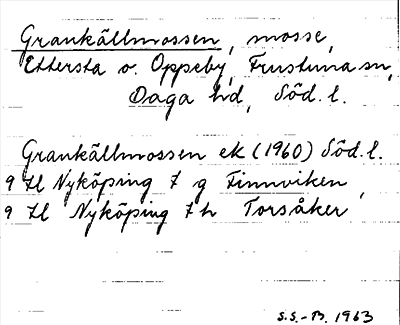 Grankällmossen, mosse,
Ettersta o. Oppeby, Frustuna sn,
Daga hd, Söd. l.
Grankällmossen ek (1960) Söd. l.
9 Hl Nyköping 7 g Finnviken,
9 Hl Nyköping 7 h Torsåker
S.S.-B. 1963